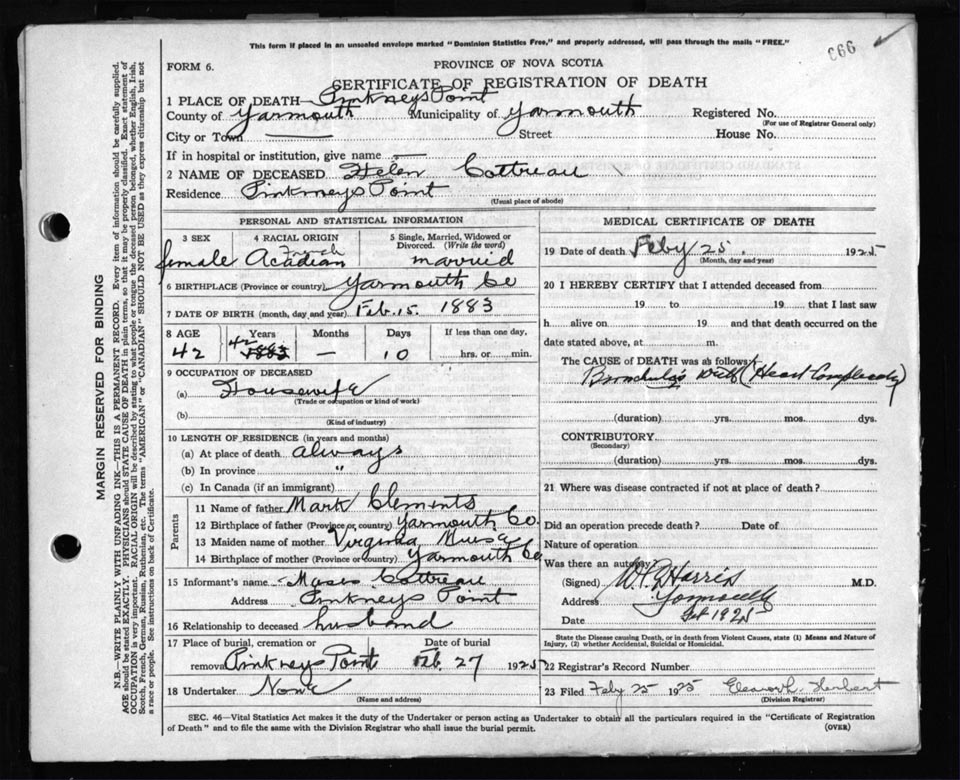 This form if placed in an unsealed envelope marked "Dominion Statistics Free," and properly addressed, will pass through the mails "FREE."
FORM 6.
PROVINCE OF NOVA SCOTIA
CERTIFICATE OF REGISTRATION OF DEATH
1 PLACE OF DEATH— Pinkneys Point
County of Yarmouth Municipality of Yarmouth Registered No.
(For use of Registrar General only)
City or Town Street House No.
If in hospital or institution, give name
2 NAME OF DECEASED Helen Cottreau
Residence Pinkneys Point
(Usual place of abode)
PERSONAL AND STATISTICAL INFORMATION
3 SEX 4 RACIAL ORIGIN 5 Single, Married, Widowed or Divorced. (Write the word)
female Acadian French married
6 BIRTHPLACE (Province or country) Yarmouth Co
7 DATE OF BIRTH (month, day and year) Feb. 15. 1883
8 AGE Years Months Days If less than one day,
42 42 1883 — 10 hrs. or min.
9 OCCUPATION OF DECEASED
(a) Housewife
(Trade or occupation or kind of work)
(b)
(Kind of industry)
10 LENGTH OF RESIDENCE (in years and months)
(a) At place of death always
(b) In province "
(c) In Canada (if an immigrant)
Parents
11 Name of father Mark Clements
12 Birthplace of father (Province or country) Yarmouth Co.
13 Maiden name of mother Virginia Muise
14 Birthplace of mother (Province or country) Yarmouth Co
15 Informant's name Moses Cottreau
Address Pinkneys Point
16 Relationship to deceased husband
17 Place of burial, cremation or removal Date of burial
Pinkneys Point Feb. 27 1925
18 Undertaker None
(Name and address)
MEDICAL CERTIFICATE OF DEATH
19 Date of death Feby 25. 1925
(Month, day and year)
20 I HEREBY CERTIFY that I attended deceased from
19 to 19 that I last saw
h alive on 19 and that death occurred on the
date stated above, at m.
The CAUSE OF DEATH was as follows:
Bronchitis with (Heart
(duration) yrs. mos. dys.
CONTRIBUTORY
(Secondary)
(duration) yrs. mos. dys.
21 Where was disease contracted if not at place of death?
Did an operation precede death? Date of
Nature of operation
Was there an autopsy?
(Signed) Harris M.D.
Address Yarmouth
Date Feb 1925
State the Disease causing Death, or in death from Violent Causes, state (1) Means and Nature of Injury, (2) whether Accidental, Suicidal or Homicidal.
22 Registrar's Record Number
23 Filed Feby 25 1925 Herbert
(Division Registrar)
SEC. 46—Vital Statistics Act makes it the duty of the Undertaker or person acting as Undertaker to obtain all the particulars required in the "Certificate of Registration
of Death" and to file the same with the Division Registrar who shall issue the burial permit.
(OVER)
MARGIN RESERVED FOR BINDING
N.B.—WRITE PLAINLY WITH UNFADING INK—THIS IS A PERMANENT RECORD. Every item of information should be carefully supplied.
AGE should be stated EXACTLY. PHYSICIANS should STATE CAUSE OF DEATH in plain terms, so that it may be properly classified. Exact statement of
OCCUPATION is very important. RACIAL ORIGIN will be described by stating to what people or tongue the deceased person belonged, whether English, Irish,
Scotch, French, German, Russian, Ruthenian, etc. The terms "AMERICAN" or "CANADIAN" SHOULD NOT BE USED as they express citizenship but not
a race or people. See instructions on back of Certificate.